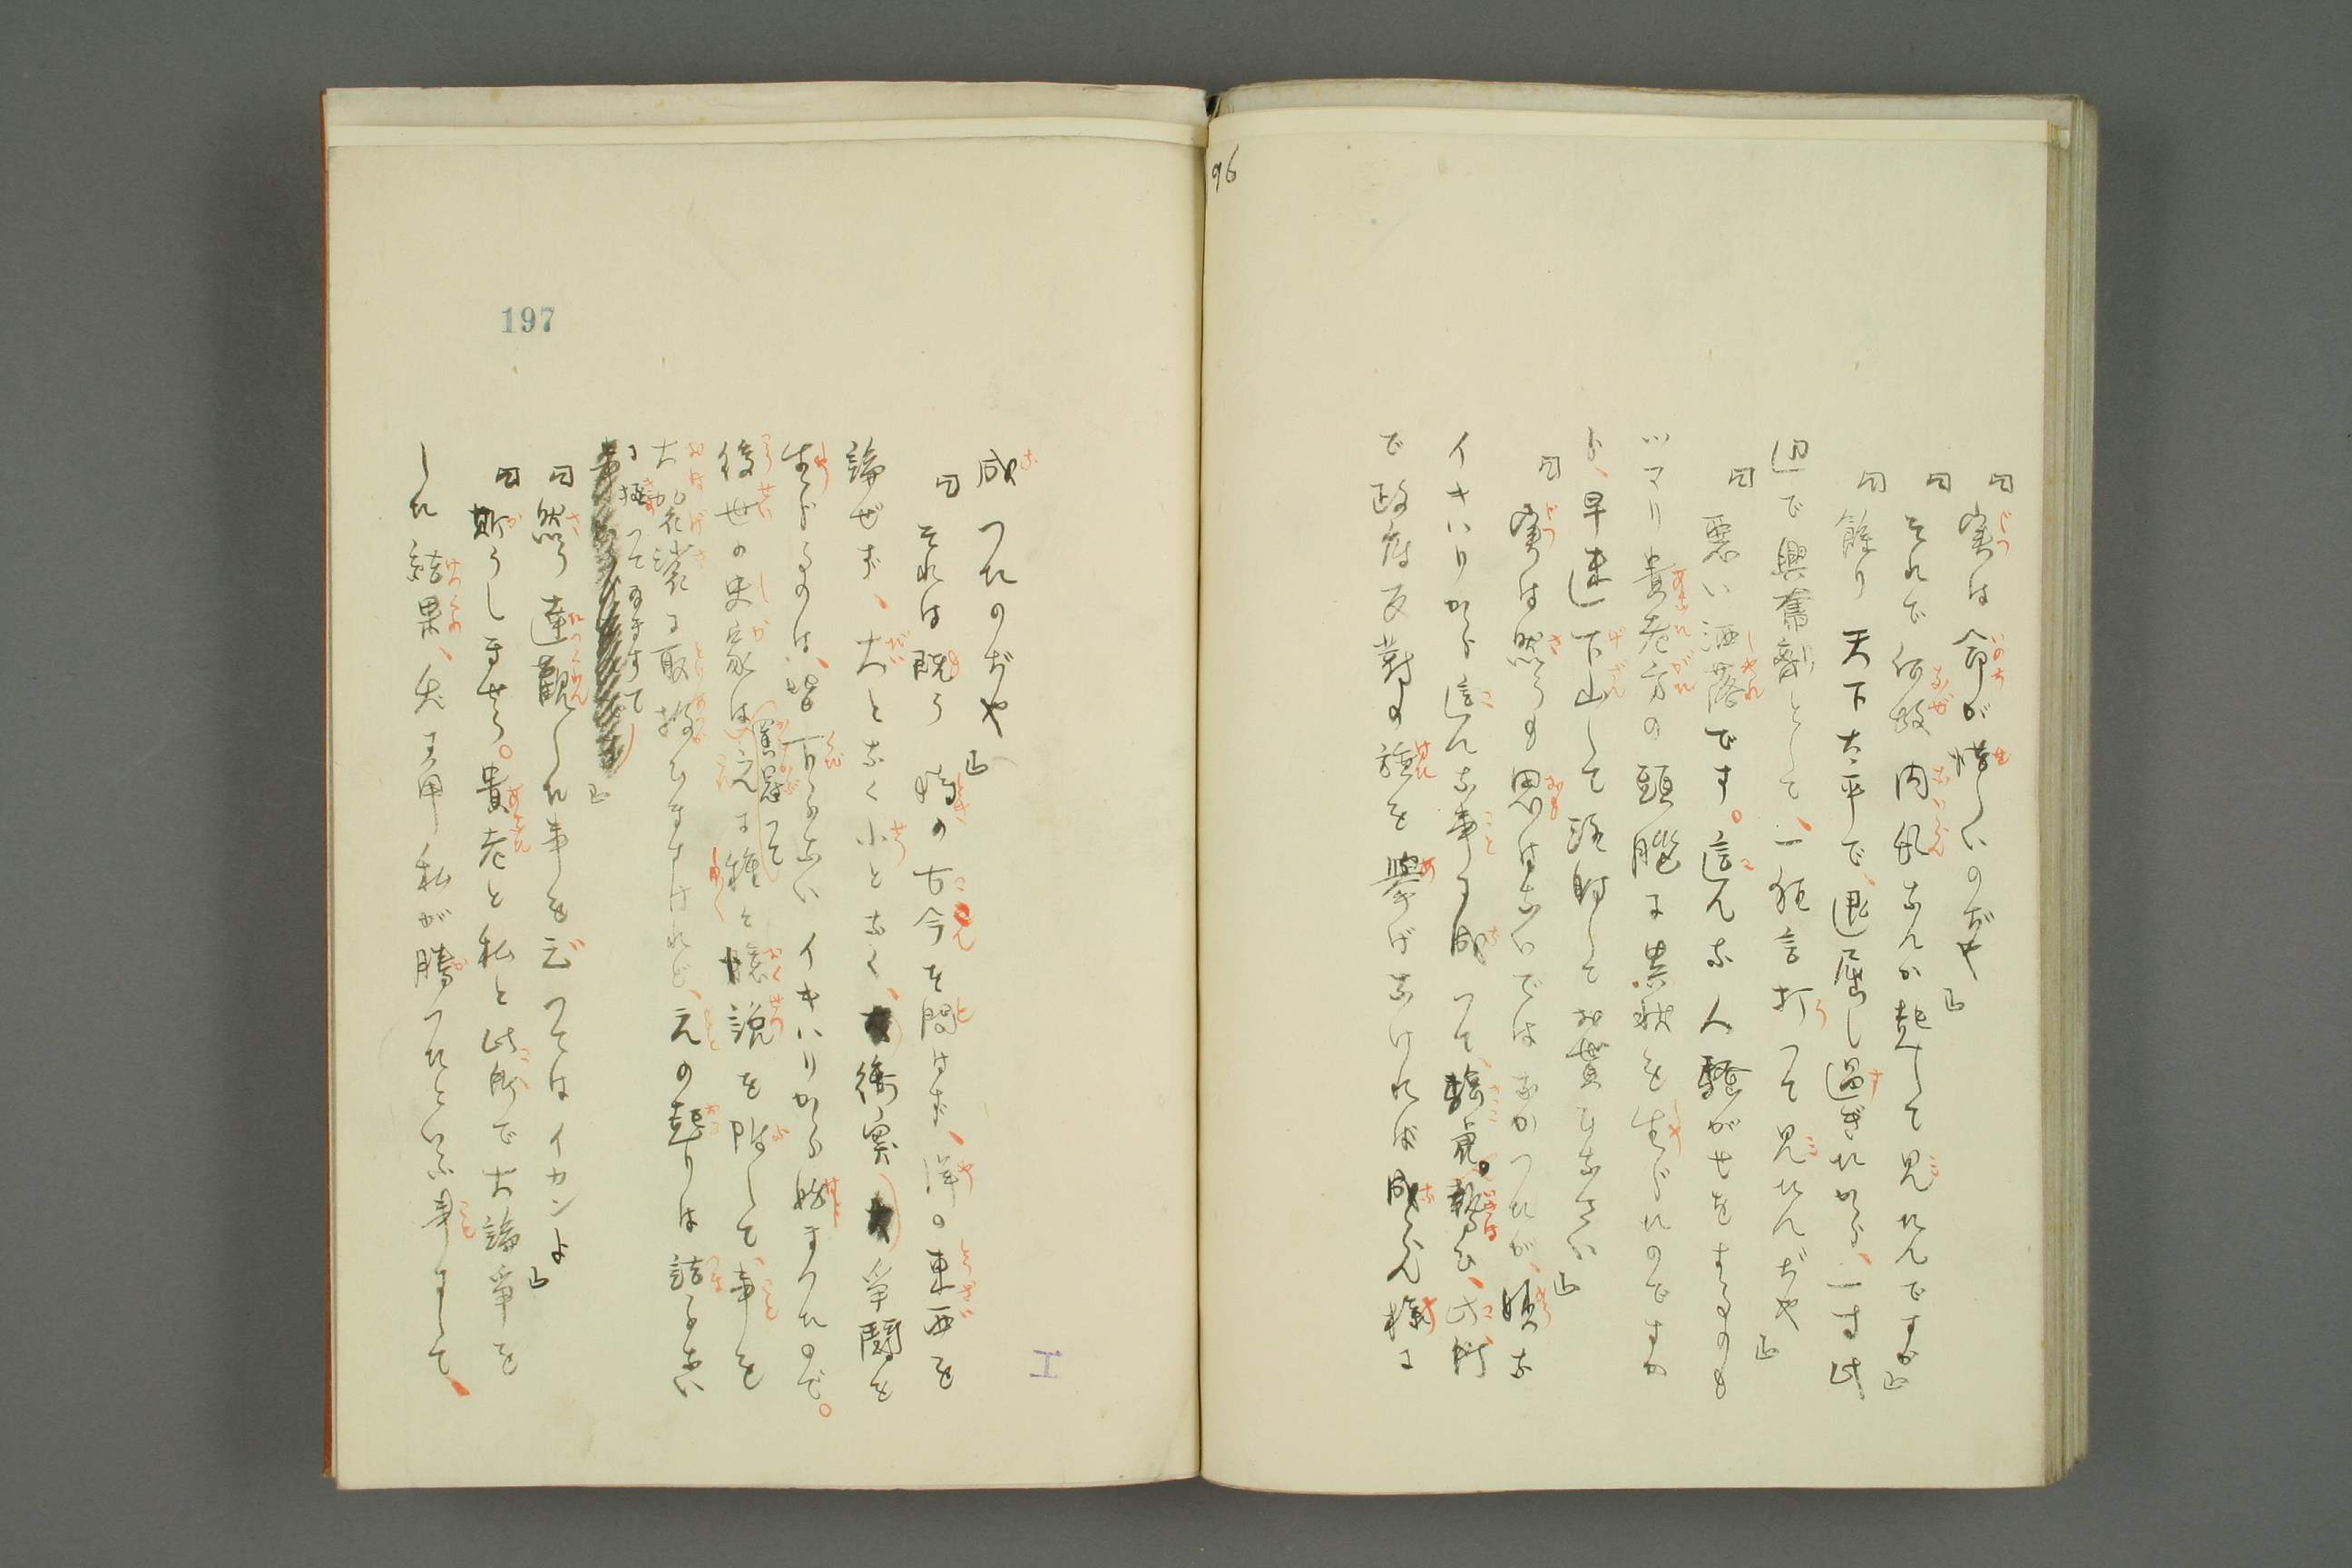 96
「実は命が惜しいのぢや」
「それで何故内乱なんか起して見たんですか」
「餘り天下太平で、退屈し過ぎたから、一寸此
辺で興奮剤として、一狂言打って見たんぢや」
「悪い洒落です。這んな人騒がせをするのも
ツマリ貴老方の頭腦に異状を生じたのですか
ら、早速下山して注射してお貰ひなさい」
「実は然うも思はないではなかつたが、妙な
イキハリから這んな事に成つて、騎虎の勢ひ、此所
で政府反対の旗を擧げなければ成らん様に
197
成つたのぢや」
「それは既う時の古今を問はず、洋の東西を
論ぜず、大となく小となく、衝突、争闘を
生ずるのは、皆下らないイキハリから始まつたので。
後世の史家は之に種々臆説を附して、事を
冪って
大袈裟に取扱ひますけれど、元の起りは詰らない
に極つてゐますて
」
「然う達観した事を云つてはイカンよ」
「斯うしませう。貴老と私と此所で大論争を
した結果、矢ッ張私が勝つたといふ事にして、
エ